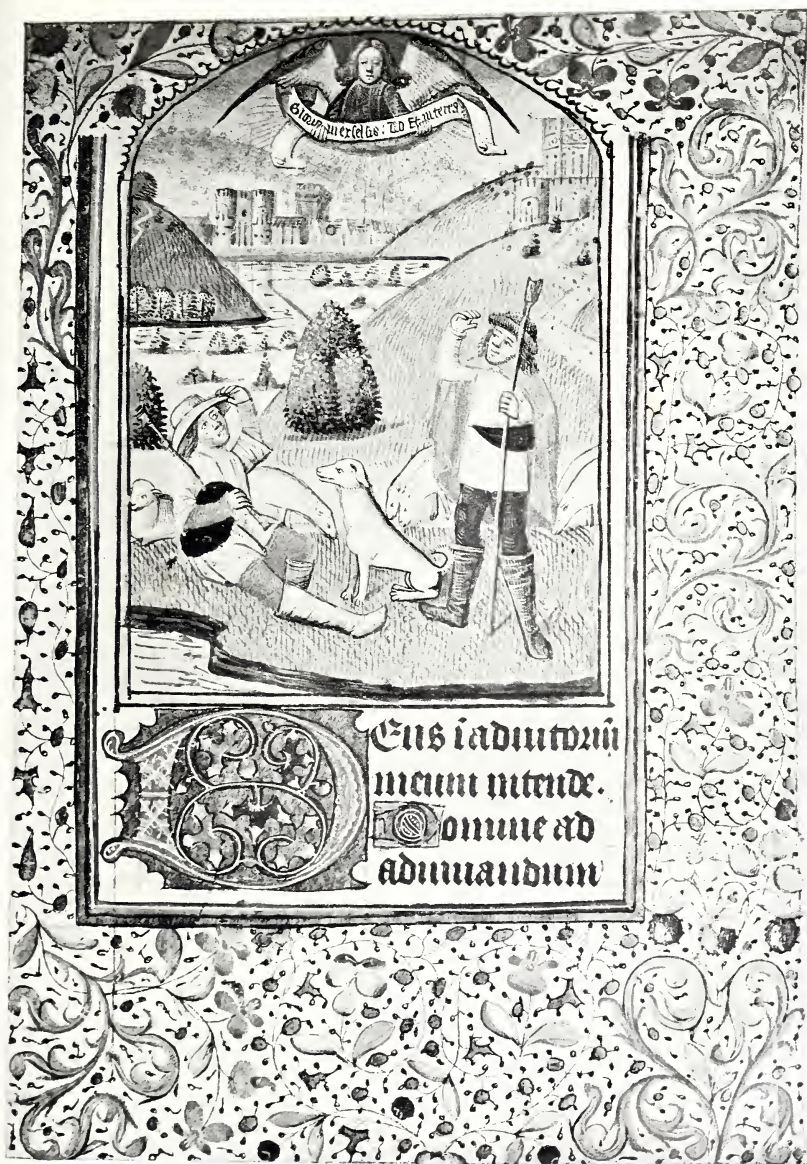 Gloria in excelsis : DO Et in terra
Deus ī adiutoriū
meum intende.
Domine ad
adiuuandum